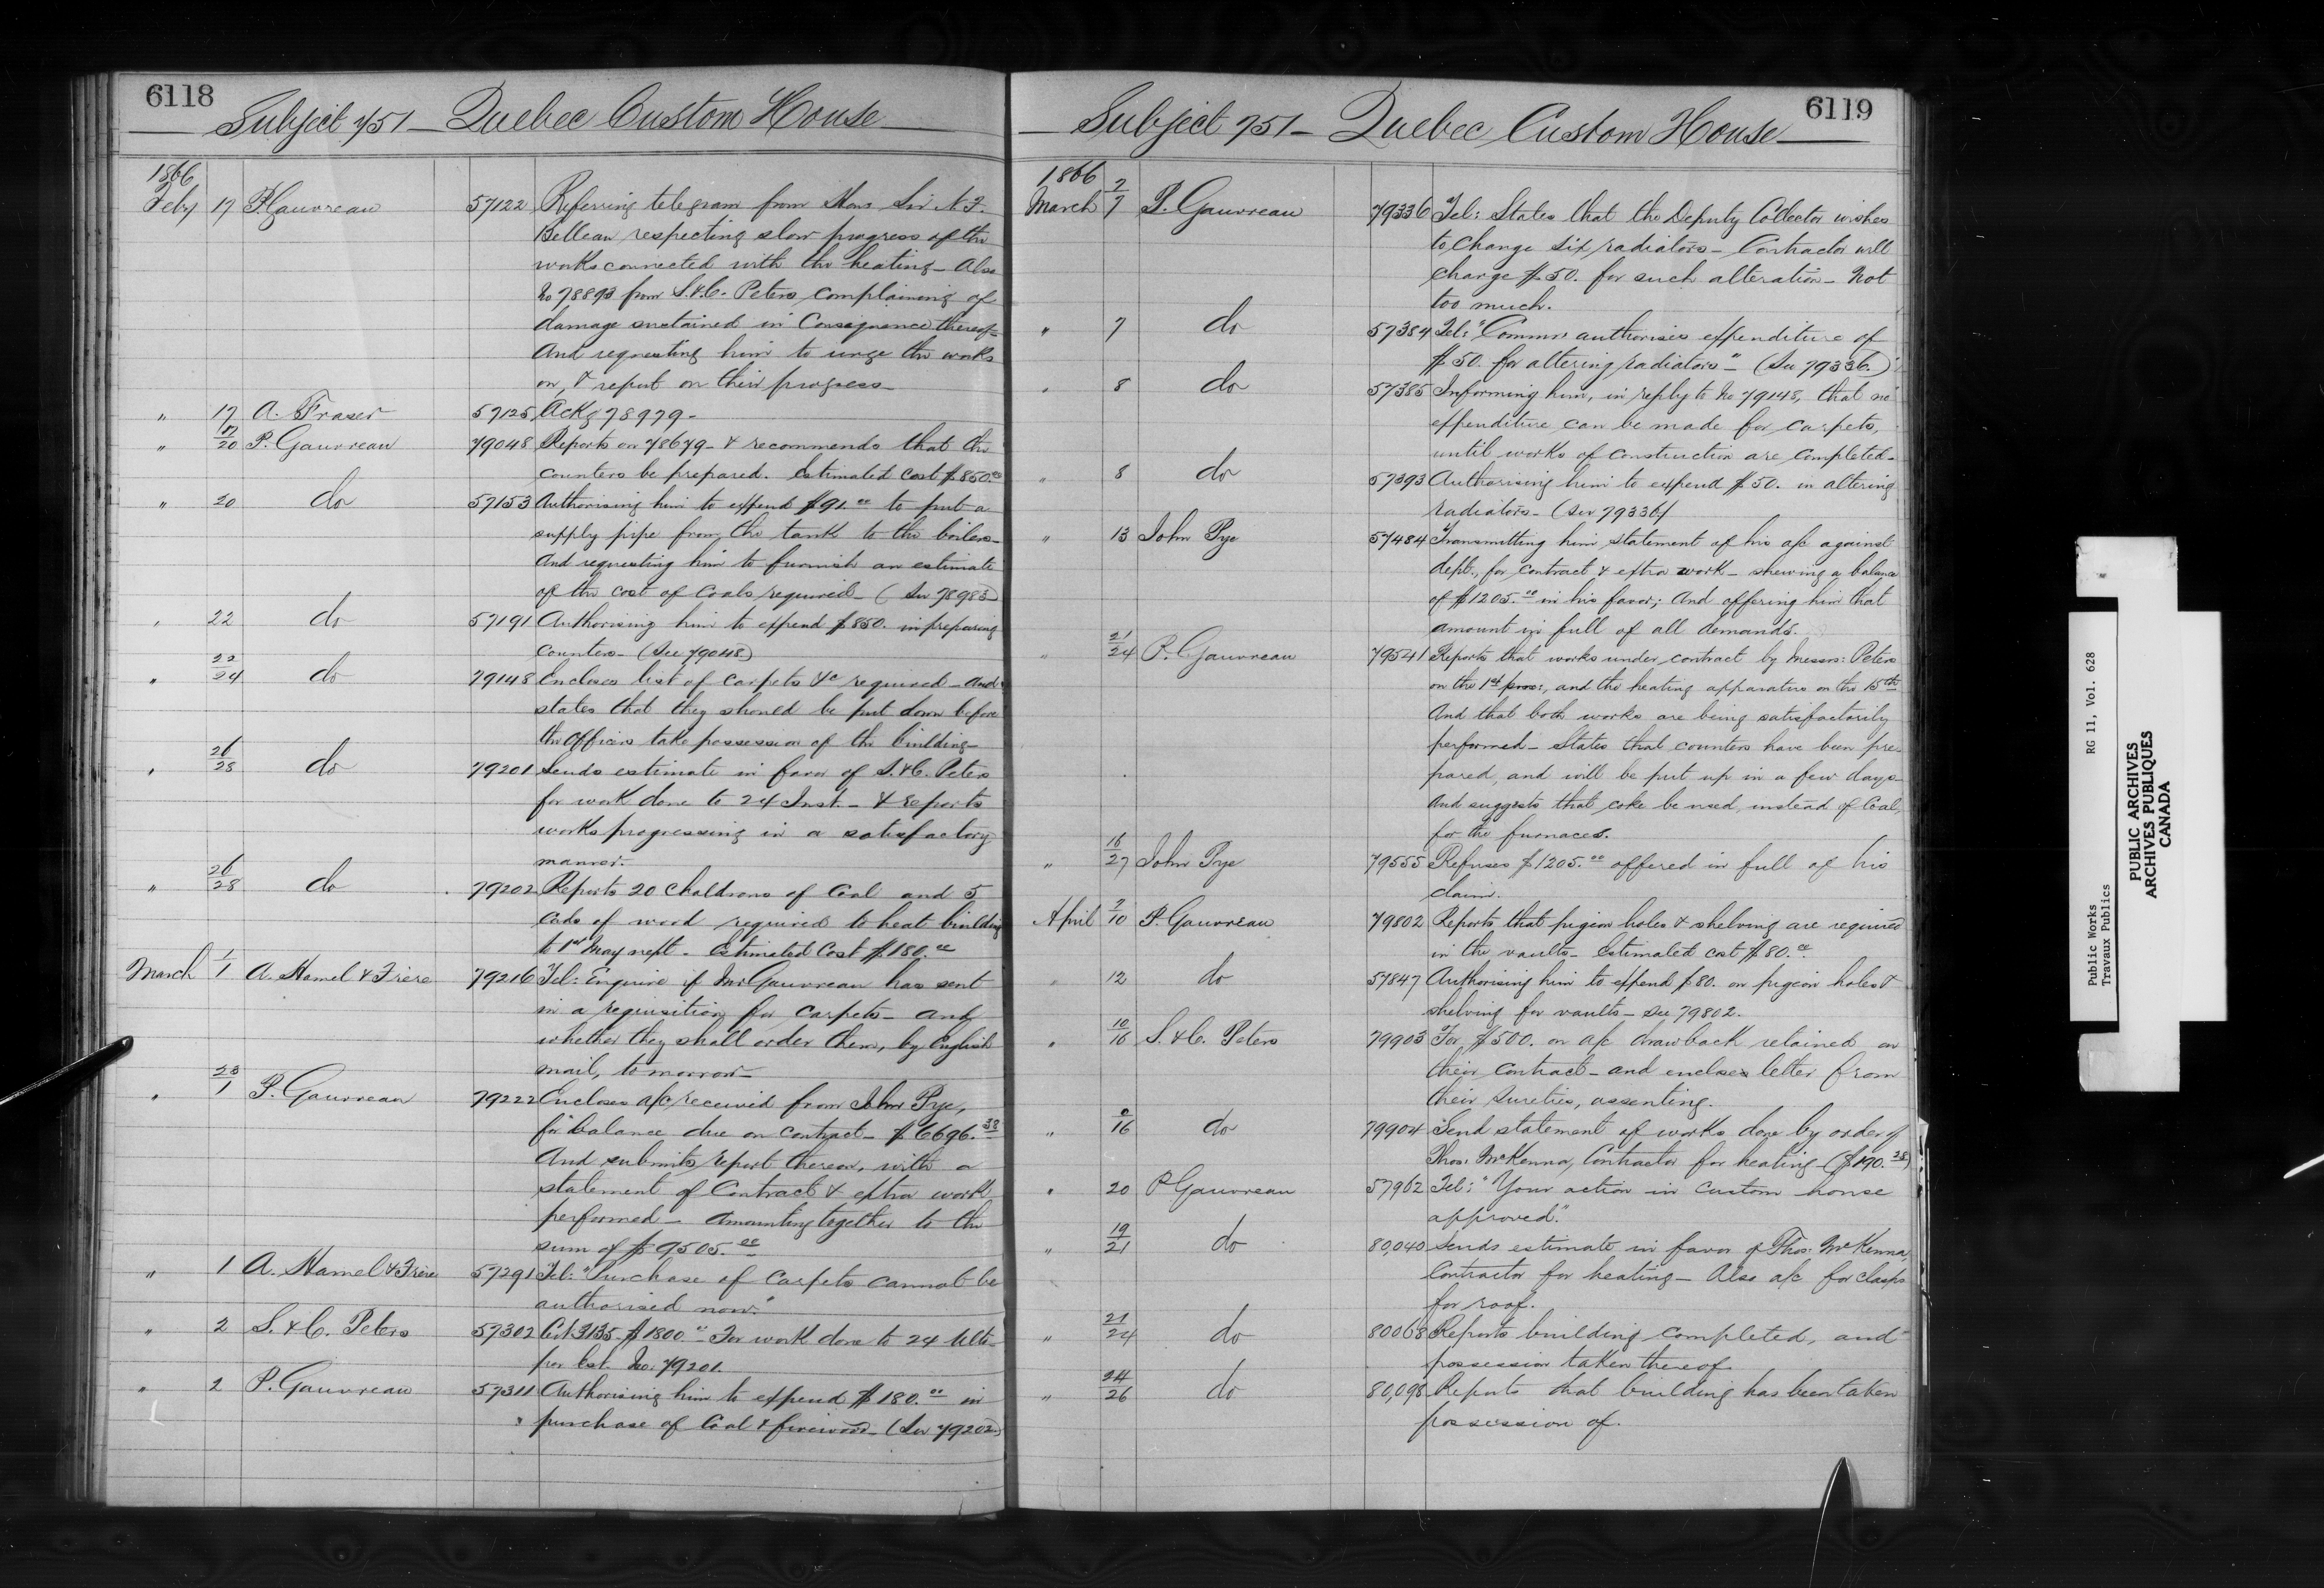 6118
Subject 751 - Quebec Custom House
1866
Feby 17 P. Gauvreau 57122 Referring telegram from Hon: Sir N. F.
Belleau respecting slow progress of the
works connected with the heating - Also
No 78893 from S. & C. Peters complaining of
damage sustained in Consequence thereof -
And requesting him to urge the works
on, & report on their progress -
" 17 A. Fraser 57125 Ackg 78979 -
" 17/20 P. Gauvreau 79048 Reports on 78679 - & recommends that the
counters be prepared. Estimated Cost $850.00
" 20 do 57153 Authorising him to expend $91.00 to put a
supply pipe from the tank to the boilers -
And requesting him to furnish an estimate
of the cost of Coals required - (See 78983)
" 22 do 57191 Authorising him to expend $850. in preparing
Counters - (See 79048)
" 22/24 do 79148 Encloses list of carpets &c required - And
states that they should be put down before
the Officers take possession of the building -
" 26/28 do 79201 Sends estimate in favor of S. & C. Peters
for work done to 24 Inst. - & reports
works progressing in a satisfactory
manner.
" 26/28 do 79202 Reports 20 Chaldrons of Coal and 5
Cords of wood required to heat building
to 1st May next - Estimated Cost $180.00
March 1/1 A. Hamel & Frère 79216 Tel: Enquire if Mr Gauvreau has sent
in a requisition for Carpets - and
whether they shall order them, by English
mail, tomorrow -
" 28/1 P. Gauvreau 79222 Encloses a/c received from John Pye,
for balance due on contract - $6696.38
And submits report thereon, with a
statement of Contract & extra work
performed - Amounting together to the
sum of $9,505.00
" 1 A. Hamel & Frère 57291 Tel: "Purchase of Carpets cannot be
authorised now."
" 2 S. & C. Peters 57302 Cert 3135 - $1800.00 For work done to 24 Ulto
per Est. No. 79201.
" 2 P. Gauvreau 57311 Authorising him to expend $180.00 in
purchase of Coal & firewood - (See 79202)
6119
Subject 751 - Quebec Custom House
1866
March 2/7 P. Gauvreau 79336 Tel: States that the Deputy Collector wishes
to change six radiators - Contractor will
charge $50. for such alteration - Not
too much.
" 7 do 57384 Tel: "Commr authorises expenditure of
$50. for altering radiators" - (See 79336)
" 8 do 57385 Informing him, in reply to No 79148, that no
expenditure can be made for carpets,
until works of construction are completed -
" 8 do 57393 Authorising him to expend $50. in altering
radiators - (See 79336)
" 13 John Pye 57484 Transmitting him statement of his a/c against
dept., for contract & extra work - shewing a balance
of $1205.00 in his favor; And offering him that
amount in full of all demands.
" 21/24 P. Gauvreau 79541 Reports that works under contract by Messrs: Peters
on the 1st prox:, and the heating apparatus on the 15th
And that both works are being satisfactorily
performed - States that counters have been pre-
pared, and will be put up in a few days -
And suggests that coke be used, instead of Coal,
for the furnaces.
" 16/27 John Pye 79555 Refuses $1205.00 offered in full of his
claim.
April 2/10 P. Gauvreau 79802 Reports that pigeon holes & shelving are required
in the vaults - Estimated cost $80.00
" 12 do 57847 Authorising him to expend $80. on pigeon holes &
shelving for vaults - See 79802.
" 10/16 S. & C. Peters 79903 For $500. on a/c drawback retained on
their contract - and encloses letter from
their sureties, assenting.
" 0/16 do 79904 Send statement of works done by order of
Thos: McKenna, Contractor for heating
" 20 P Gauvreau 57962 Tel: "Your action in Custom house
approved."
" 19/21 do 80,040 Sends estimate in favor of Thos: McKenna,
Contractor for heating - Also a/c for clasps
for roof.
" 21/24 do 80068 Reports building completed, and
possession taken thereof
" 24/26 do 80,098 Reports that building has been taken
possession of.
Public Works RG 11, Vol. 628
Travaux Publics
PUBLIC ARCHIVES
ARCHIVES PUBLIQUES
CANADA